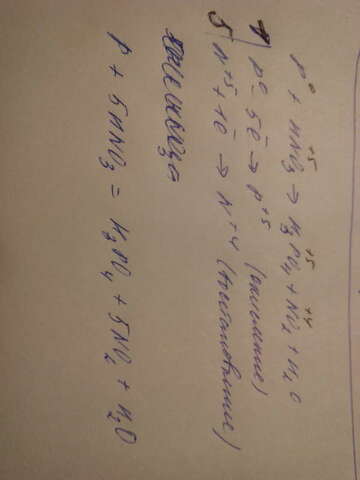 P⁰ + HNO₃⁺⁵ → H₃PO₄⁺⁵ + NO₂⁺⁴ + H₂O
1) P⁰ - 5ē → P⁺⁵ (окисление)
5) N⁺⁵ + 1ē → N⁺⁴ (восстановление)
P + 5HNO₃ = H₃PO₄ + 5NO₂ + H₂O